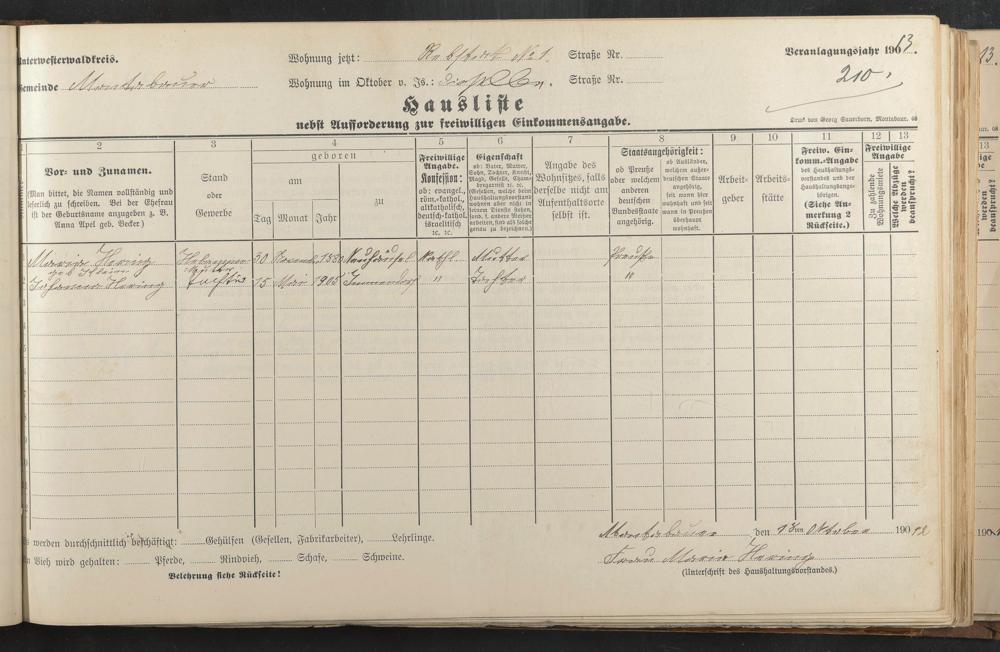 Unterwesterwaldkreis. Wohnung jetzt: Rebstock No 1. Straße Nr. Veranlagungsjahr 1913.
Gemeinde Montabaur Wohnung im Oktober v. Js.: dieselbe. Straße Nr. 210.
Hausliste
nebst Aufforderung zur freiwilligen Einkommensangabe.
Druck von Georg Sauerborn, Montabaur.
2 3 4 5 6 7 8 9 10 11 12 13
Vor- und Zunamen.
(Man bittet, die Namen vollständig und
leserlich zu schreiben. Bei der Ehefrau
ist der Geburtsname anzugeben z. B.
Anna Apel geb. Becker.)
Stand
oder
Gewerbe
geboren
am
zu
Tag Monat Jahr
Freiwillige
Angabe.
Konfession:
ob: evangel.,
röm.-kathol.,
altkatholisch,
deutsch-kathol.
israelitisch
ꝛc. ꝛc.
Eigenschaft
ob: Vater, Mutter,
Sohn, Tochter, Knecht,
Magd, Gesell, Cham-
bregarnist ꝛc. ꝛc.
Angabe des
Wohnsitzes, falls
derselbe nicht am
Aufenthaltsorte
selbst ist.
Staatsangehörigkeit:
ob Preuße
oder welchem
anderen
deutschen
Bundesstaate
angehörig.
ob Ausländer,
welchem außer-
deutschen Staate
angehörig,
seit wann hier
wohnhaft und seit
wann in Preußen
überhaupt
wohnhaft.
Arbeit-
geber
Arbeits-
stätte
Freiw. Ein-
komm.-Angabe
des Haushaltungs-
vorstandes und der
Haushaltungsange-
hörigen.
(Siehe An-
merkung 2
Rückseite.)
Freiwillige
Angabe
Zu zahlende
Wohnungsmiete
Welche Abzüge
werden
beansprucht?
Maria Hering 30 1880 Kathl. Mutter Preuße
geb.
Johanna Hering 15 Mai 1905 " Tochter "
werden durchschnittlich beschäftigt: Gehülfen (Gesellen, Fabrikarbeiter), Lehrlinge.
An Vieh wird gehalten: Pferde, Rindvieh, Schafe, Schweine.
Belehrung siehe Rückseite!
Montabaur, den Oktober 1912
Frau Maria Hering
(Unterschrift des Haushaltungsvorstandes.)